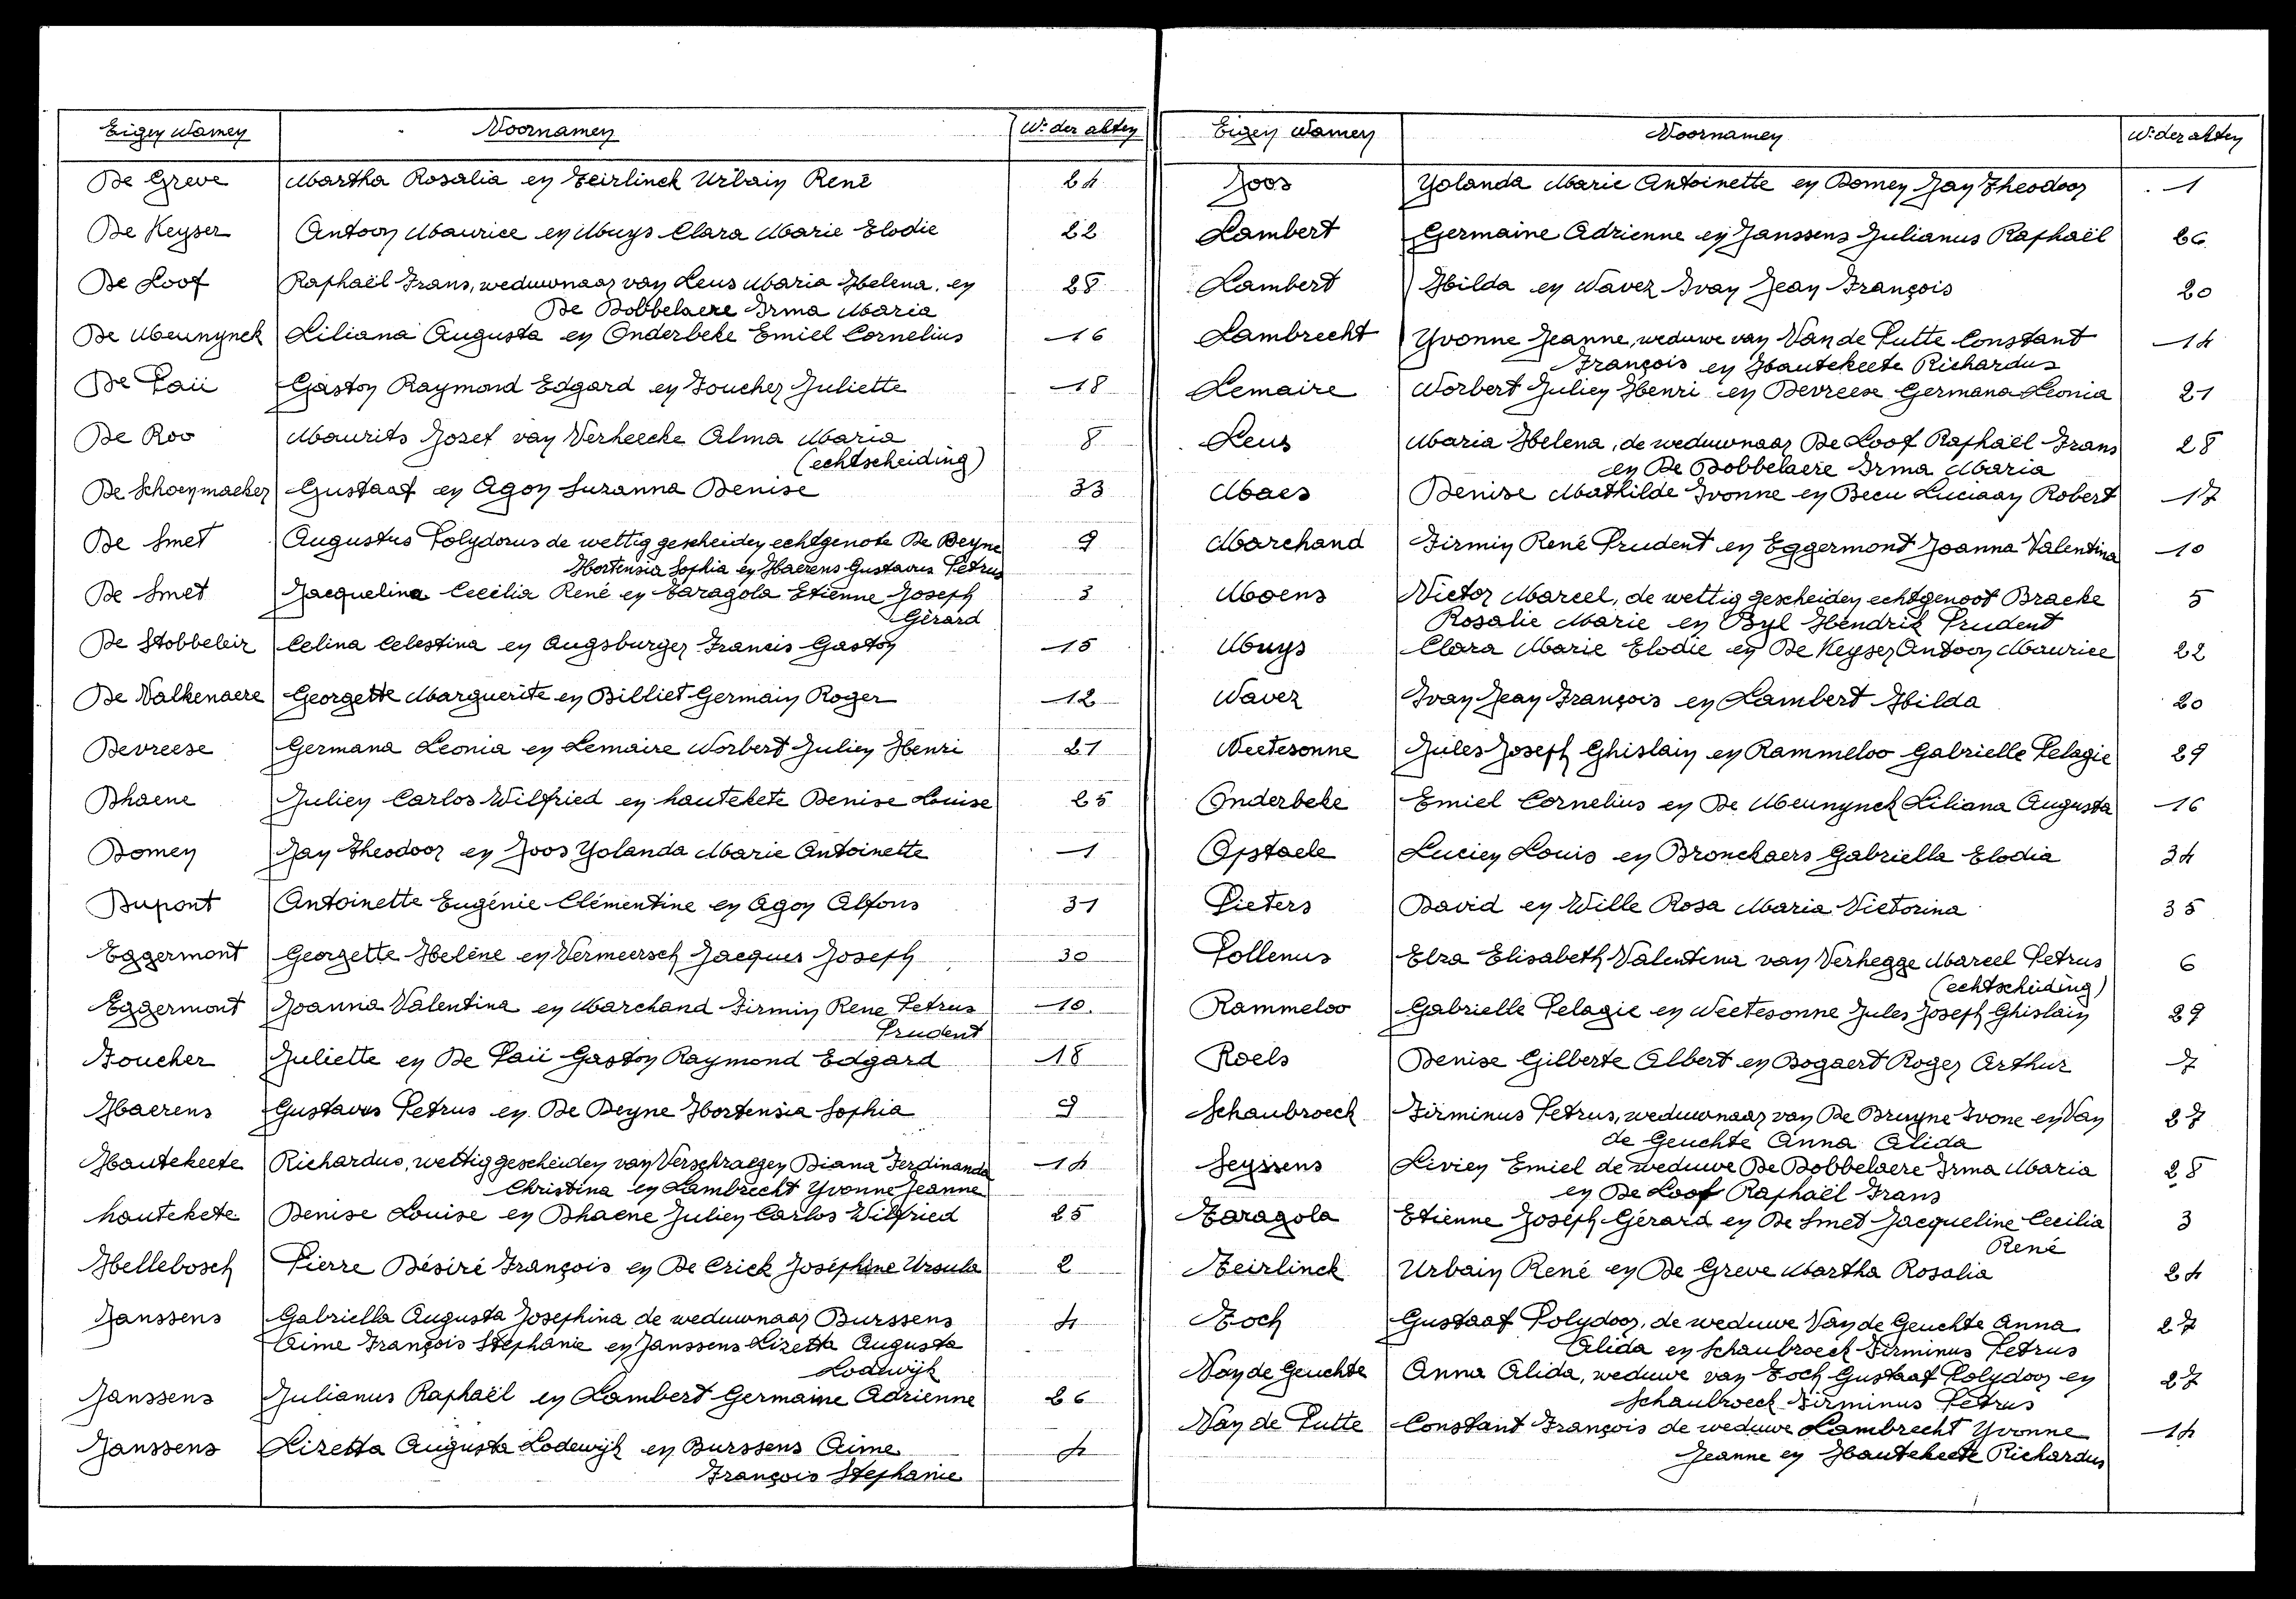 Eigen Namen Voornamen Nr der akten
De Greve Martha Rosalia en Teirlinck Urbain René 24
De Keyser Antoon Maurice en Muys Clara Marie Elodie 22
De Loof Raphaël Frans, weduwnaar van Leus Maria Helena en 28
De Dobbelaere Irma Maria
De Meunynck Liliana Augusta en Onderbeke Emiel Cornelius 16
De Paü Gaston Raymond Edgard en Foucher Juliette 18
De Roo Maurits Jozef van Verheecke Alma Maria 8
(echtscheiding)
De Schoenmaeker Gustaaf en Agon Suzanna Denise 33
De Smet Augustus Polydorus de wettig gescheiden echtgenote De Deyne 9
Hortensia Sophia en Haerens Gustavus Petrus
De Smet Jacqueline Cecilia René en Taragola Etienne Joseph 3
Gérard
De Stobbeleir Celina Celestina en Augsburger Francis Gaston 15
De Valkenaere Georgette Marguerite en Billiet Germain Roger 12
Devreese Germana Leonia en Lemaire Norbert Julien Henri 21
Dhaene Julien Carlos Wilfried en hautekete Denise Louise 25
Domen Jan Theodoor en Joos Yolanda Marie Antoinette 1
Dupont Antoinette Eugénie Clémentine en Agon Alfons 31
Eggermont Georgette Helène en Vermeersch Jacques Joseph 30
Eggermont Joanna Valentina en Marchand Firmin Rene Petrus 10
Prudent
Foucher Juliette en De Paü Gaston Raymond Edgard 18
Haerens Gustavus Petrus en De Deyne Hortensia Sophia 9
Hautekeete Richardus, wettig gescheiden van Verschraegen Diana Ferdinanda 14
Christina en Lambrecht Yvonne Jeanne
hautekete Denise Louise en Dhaene Julien Carlos Wilfried 25
Hellebosch Pierre Désiré François en De Crick Joséphine Ursula 2
Janssens Gabriella Augusta Josephina de weduwnaar Burssens 4
Aime François Stephanie en Janssens Lizetta Augusta
Lodewijk
Janssens Julianus Raphaël en Lambert Germaine Adrienne 26
Janssens Lizetta Augusta Lodewijk en Burssens Aime 4
François Stephanie
Eigen Namen Voornamen Nr der akten
Joos Yolanda Marie Antoinette en Domen Jan Theodoor 1
Lambert Germaine Adrienne en Janssens Julianus Raphaël 26
Lambert Hilda en Navez Ivan Jean François 20
Lambrecht Yvonne Jeanne, weduwe van Van de Putte Constant 14
François en Hautekeete Richardus
Lemaire Norbert Julien Henri en Devreese Germana Leonia 21
Leus Maria Helena, de weduwnaar De Loof Raphaël Frans 28
en De Dobbelaere Irma Maria
Maes Denise Mathilde Ivonne en Becu Luciaan Robert 17
Marchand Firmin René Prudent en Eggermont Joanna Valentina 10
Moens Victor Marcel, de wettig gescheiden echtgenoot Bracke 5
Rosalie Marie en Byl Hendrik Prudent
Muys Clara Marie Elodie en De Keyser Antoon Maurice 22
Navez Ivan Jean François en Lambert Hilda 20
Neetesonne Jules Joseph Ghislain en Rammeloo Gabrielle Pelagie 29
Onderbeke Emiel Cornelius en De Meunynck Liliana Augusta 16
Opstaele Lucien Louis en Bronckaers Gabriella Elodia 34
Pieters David en Wille Rosa Maria Victorina 35
Pollenus Elza Elisabeth Valentina van Verhegge Marcel Petrus 6
(echtscheiding)
Rammeloo Gabrielle Pelagie en Neetesonne Jules Joseph Ghislain 29
Roels Denise Gilberte Albert en Bogaert Roger Arthur 7
Schaubroeck Firminus Petrus, weduwnaar van De Bruyne Ivone en Van 27
de Geuchte Anna Alida
Seyssens Livien Emiel de weduwe De Dobbelaere Irma Maria 28
en De Loof Raphaël Frans
Taragola Etienne Joseph Gérard en De Smet Jacqueline Cecilia 3
René
Teirlinck Urbain René en De Greve Martha Rosalia 24
Toch Gustaaf Polydoor, de weduwe Van de Geuchte Anna 27
Alida en Schaubroeck Firminus Petrus
Van de Geuchte Anna Alida, weduwe van Toch Gustaaf Polydoor en 27
Schaubroeck Firminus Petrus
Van de Putte Constant François de weduwe Lambrecht Yvonne 14
Jeanne en Hautekeete Richardus